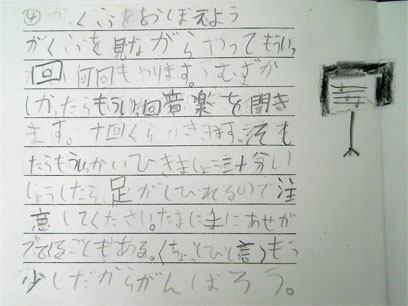 ④がくふをおぼえよう
がくふを見ながらやってもういっ
回何回もやります。むずか
しかったらもういっ回音楽を聞き
ます。十回くらいききます。
たらもういっかいひきましょう 十分い
じょうしたら、足がしびれるので注
意してください。たまに手にあせが
でてくることもある。(ちょっとひと言)もう
少しだからがんばろう。